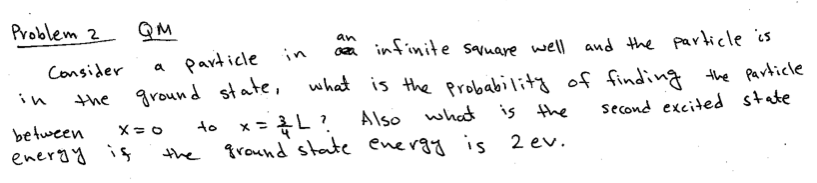 Problem 2 QM
Consider a particle in an infinite square well and the particle is
in the ground state, what is the probability of finding the particle
between x=0 to x = 3/4 L? Also what is the second excited state
energy is the ground state energy is 2 ev.